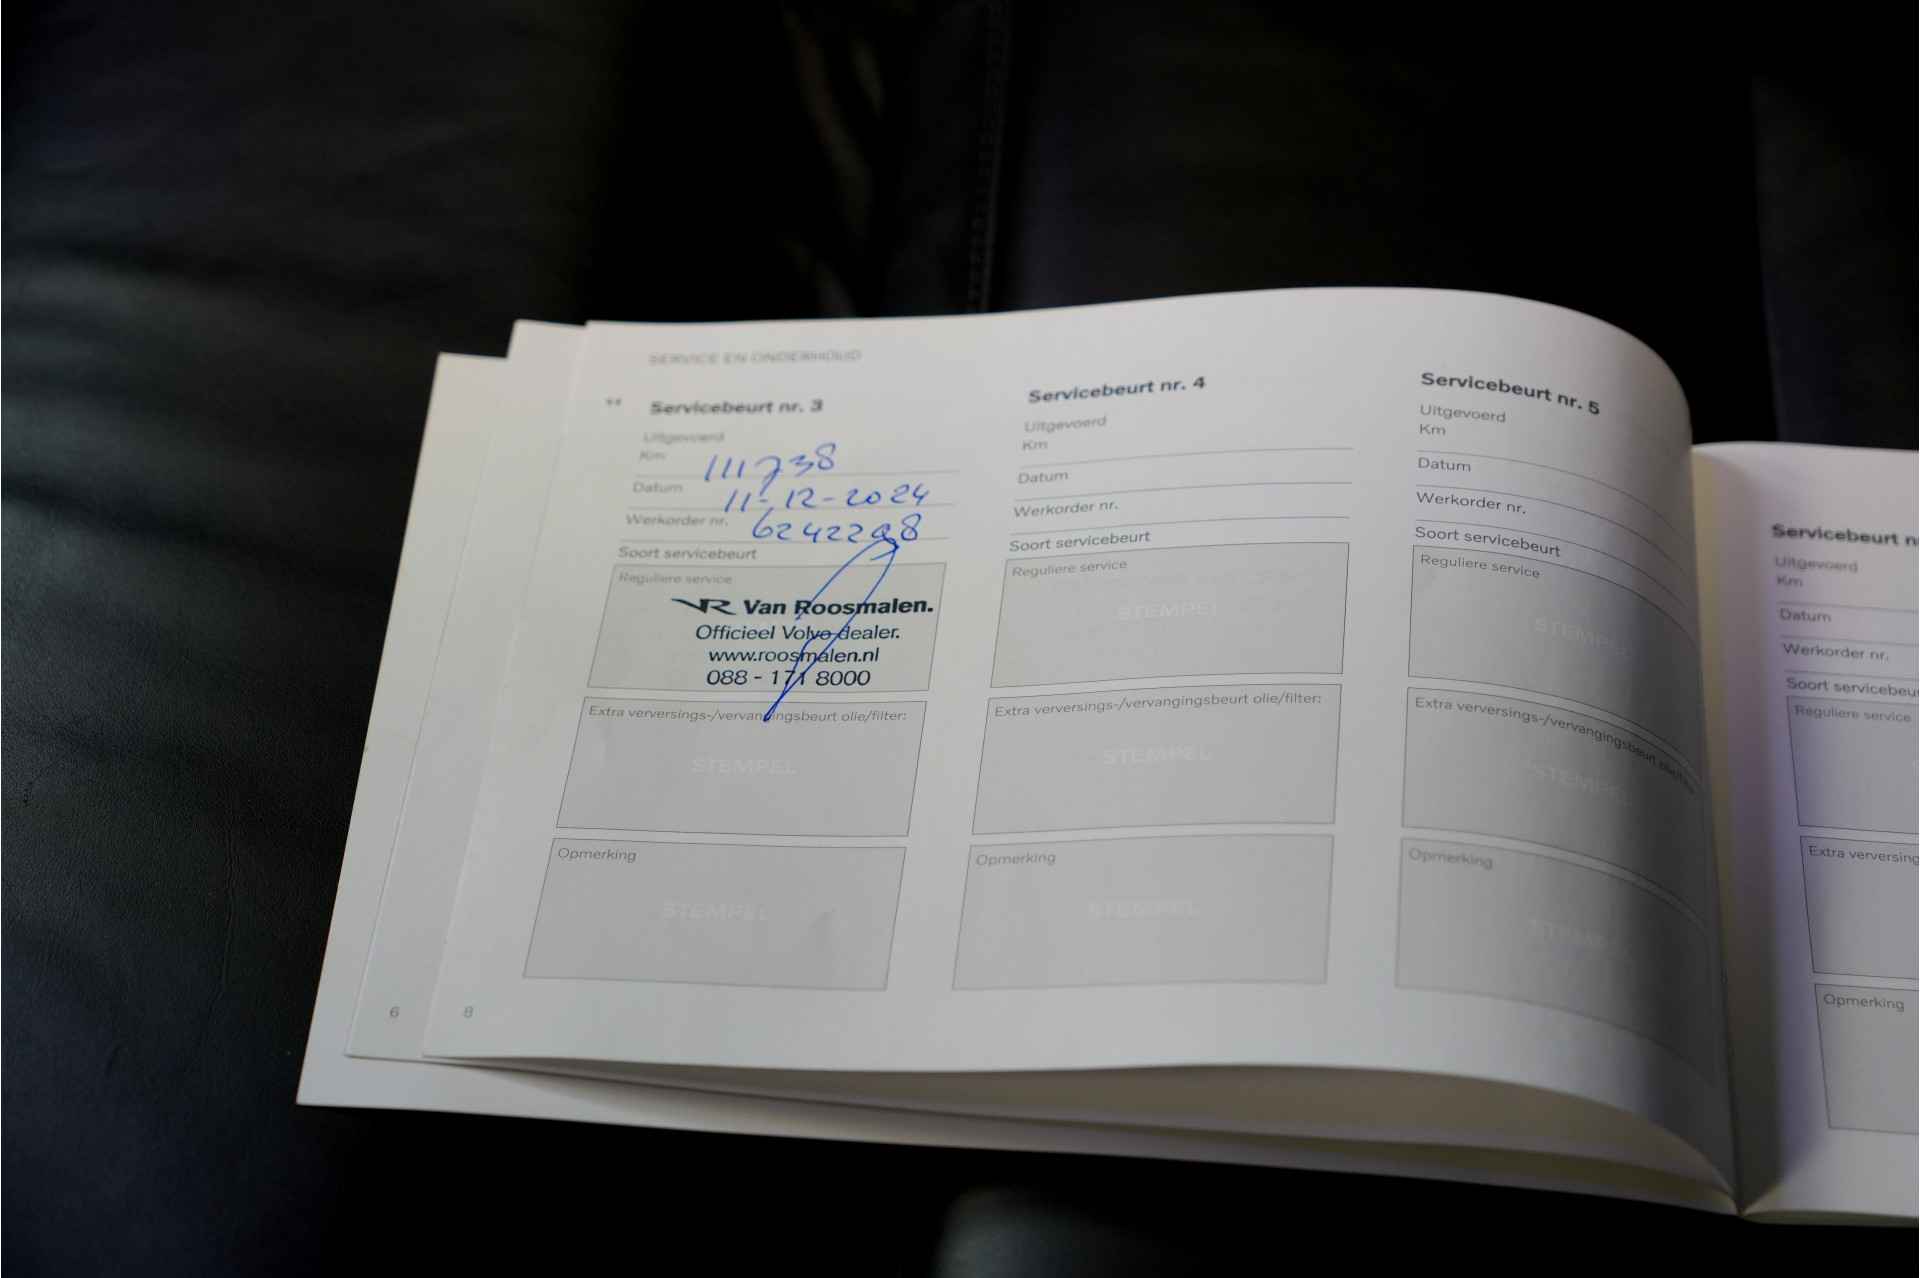 SERVICE EN ONDERHOUD
Servicebeurt nr. 3
Uitgevoerd
Km 111738
Datum 11-12-2024
Werkorder nr. 6242298
Soort servicebeurt
Reguliere service
VR Van Roosmalen.
Officieel Volvo dealer.
www.roosmalen.nl
088 - 171 8000
Extra verversings-/vervangingsbeurt olie/filter:
STEMPEL
Opmerking
STEMPEL
6
8
Servicebeurt nr. 4
Uitgevoerd
Km
Datum
Werkorder nr.
Soort servicebeurt
Reguliere service
STEMPEL
Extra verversings-/vervangingsbeurt olie/filter:
STEMPEL
Opmerking
STEMPEL
Servicebeurt nr. 5
Uitgevoerd
Km
Datum
Werkorder nr.
Soort servicebeurt
Reguliere service
STEMPEL
Extra verversings-/vervangingsbeurt olie/filter:
STEMPEL
Opmerking
STEMPEL
Servicebeurt n
Uitgevoerd
Km
Datum
Werkorder nr.
Soort servicebeu
Reguliere service
Extra verversing
Opmerking